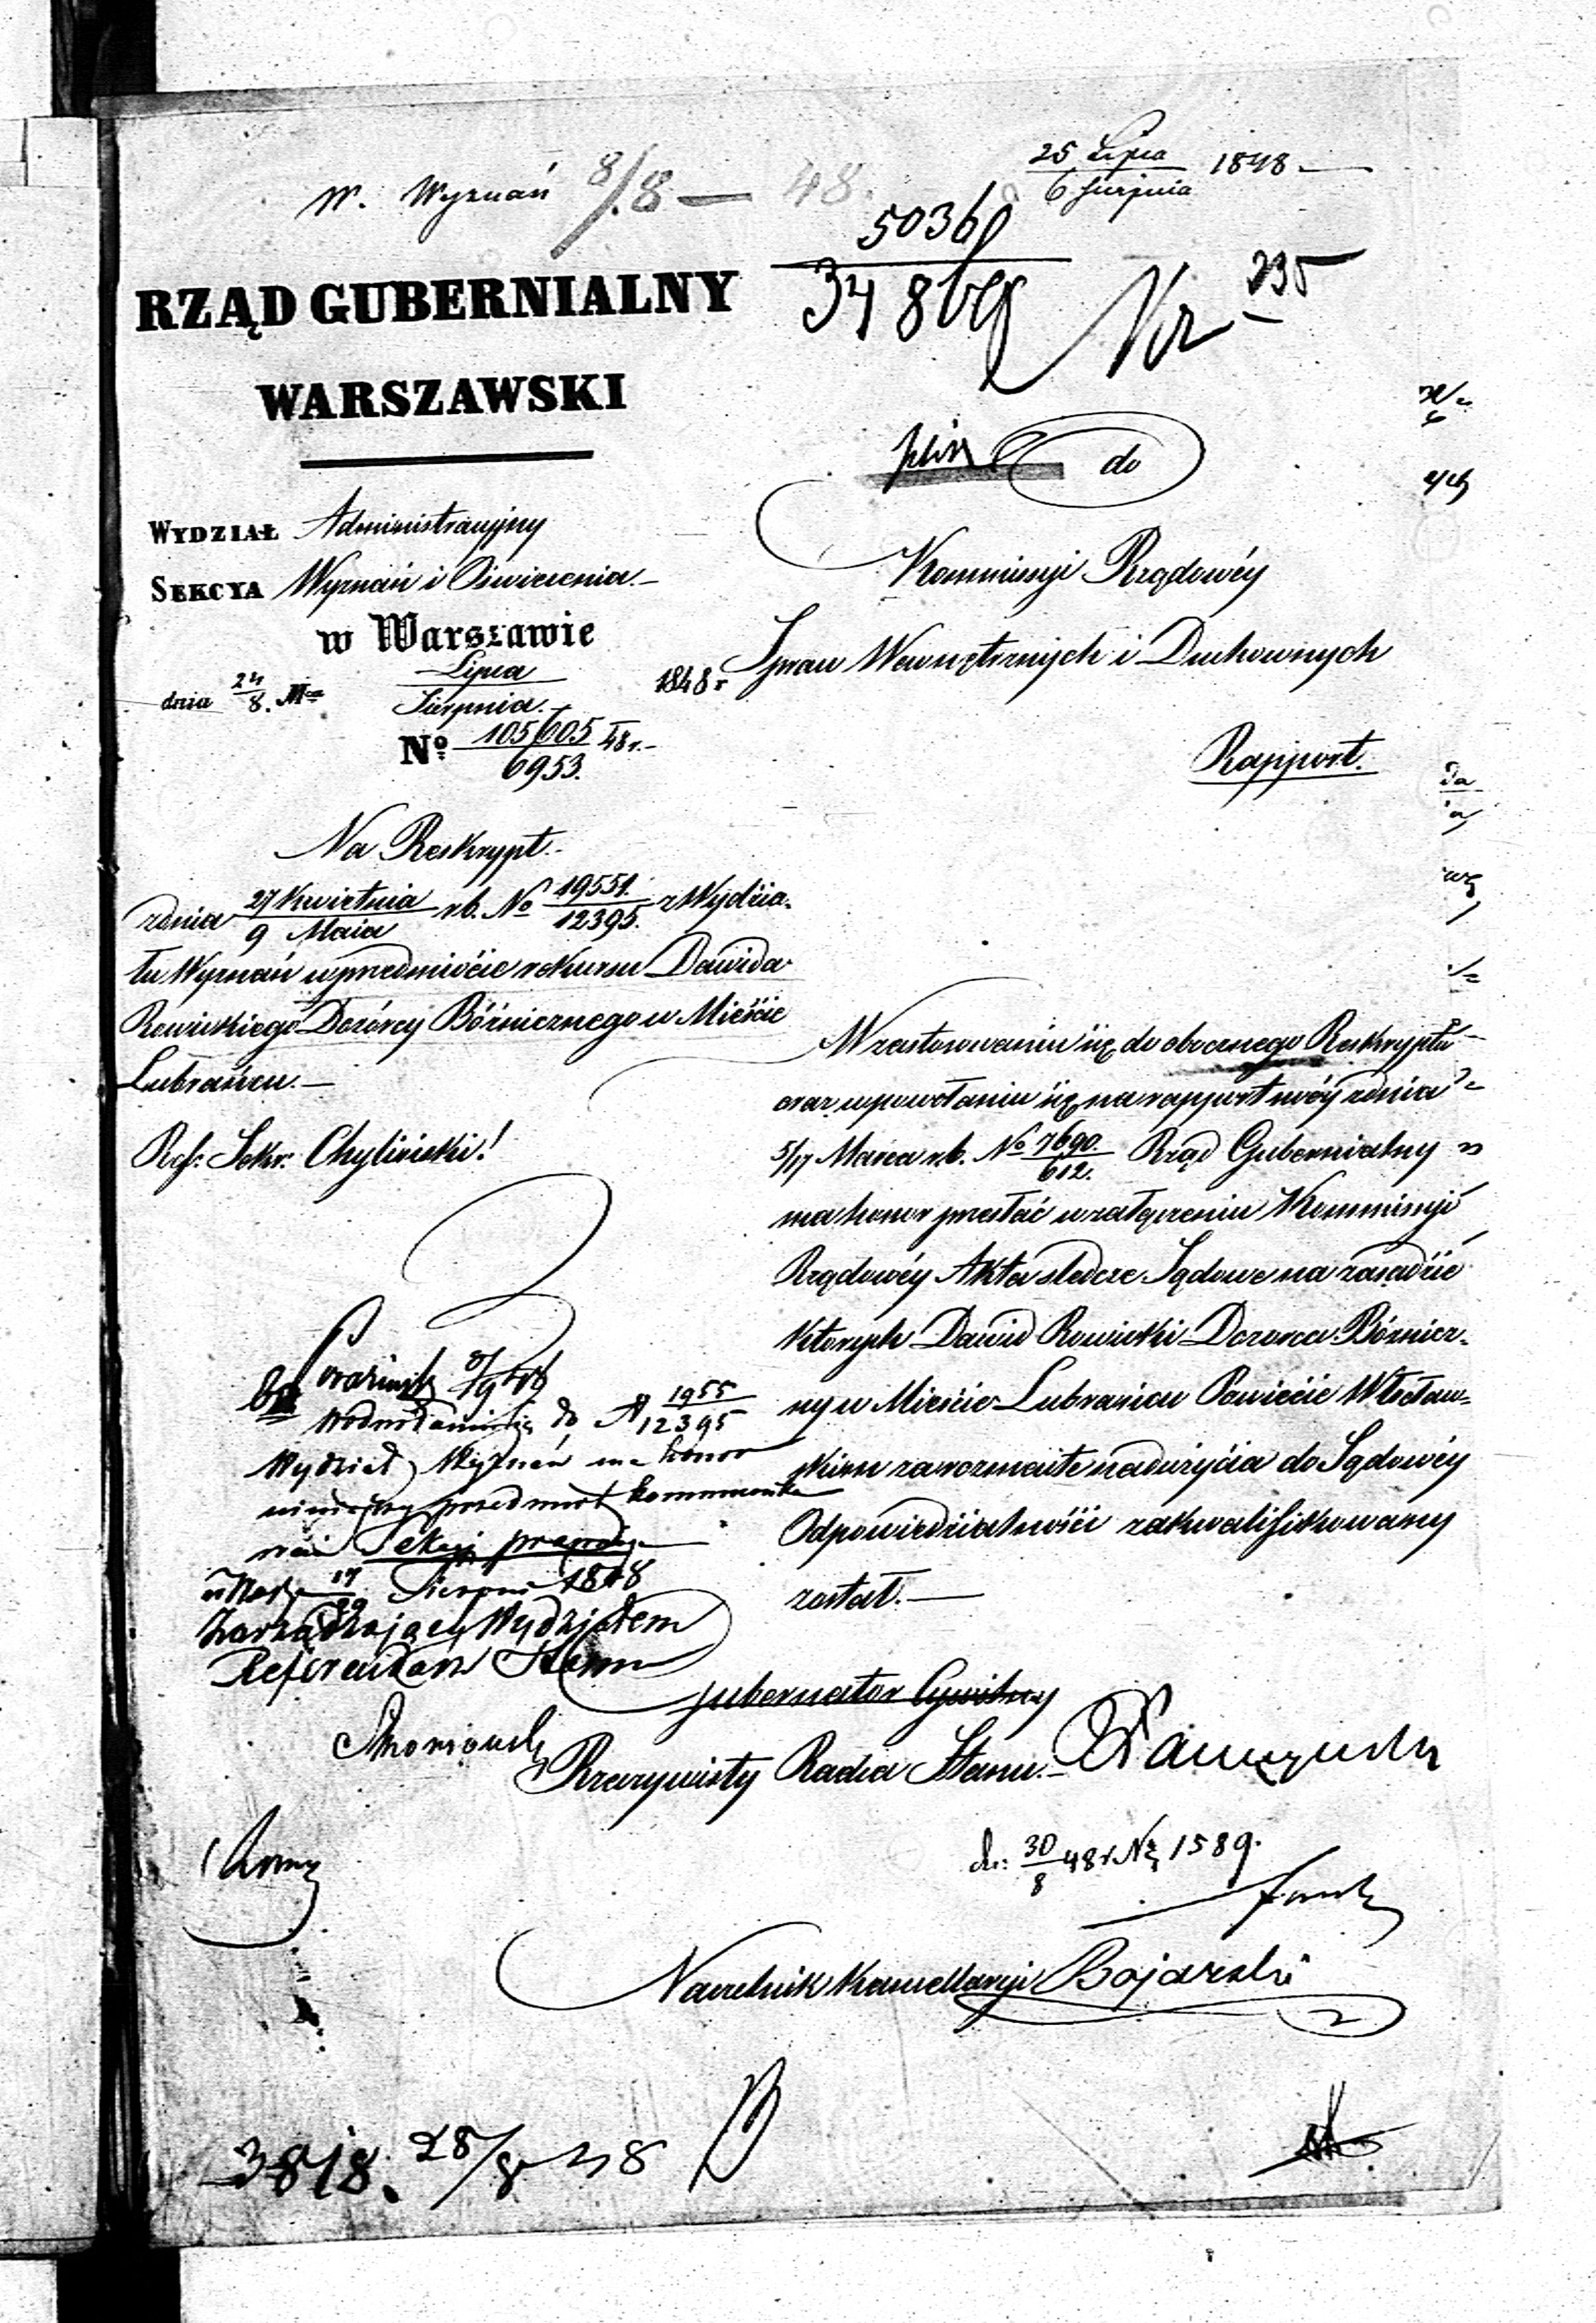 W. Wyznań 8/8 — 48.
25 Lipca
6 Sierpnia 1848 —
Nr 235
RZĄD GUBERNIALNY
WARSZAWSKI
do
WYDZIAŁ Administracyjny
SEKCYA Wyznań i Oświecenia.—
w Warszawie
dnia 24/8. Mca Lipca/Sierpnia. 1848 r
No 105605/6953. 48 r.—
Kommissyi Rządowéy
Spraw Wewnętrznych i Duchownych
Rapport.
Na Reskrypt.
zdnia 27 Kwietnia/9 Maia rb. No 19551./12395. z Wydzia-
łu Wyznań wprzedmiocie rekursu Dawida
Dozórcy Bóźnicznego w Mieście
Lubrańcu.—
Ref: Sekr: Chyliński!
W zastosowaniu się do obocznego Reskryptu
oraz wpowołaniu się na rapport swóy zdnia
5/17 Marca r.b. No 7690./612. Rząd Gubernialny
ma honor przesłać w załączeniu Kommissyi
Rządowéy Akta śledcze Sądowe na zasadzie
których Dawid Dozorca Bóżnicz-
ny w Mieście Lubrańcu Powiecie Włocław-
skim za rozmaite nadużycia do Sądowéy
Odpowiedzialności zakwalifikowany
został.—
do N 1955/12395
Wydział Wyznań ma honor
niniejszy przedmiot kommuniko-
wać Sekcyi prawnéy
Sierpnia 1848
Zarządzający Wydziałem
Referendarz Stanu
Gubernator Cywilny
Rzeczywisty Radca Stanu.
dn: 30/8 48 r. Nr 1589.
Naczelnik Kancellaryi Bojarski
3818. 28/8 48